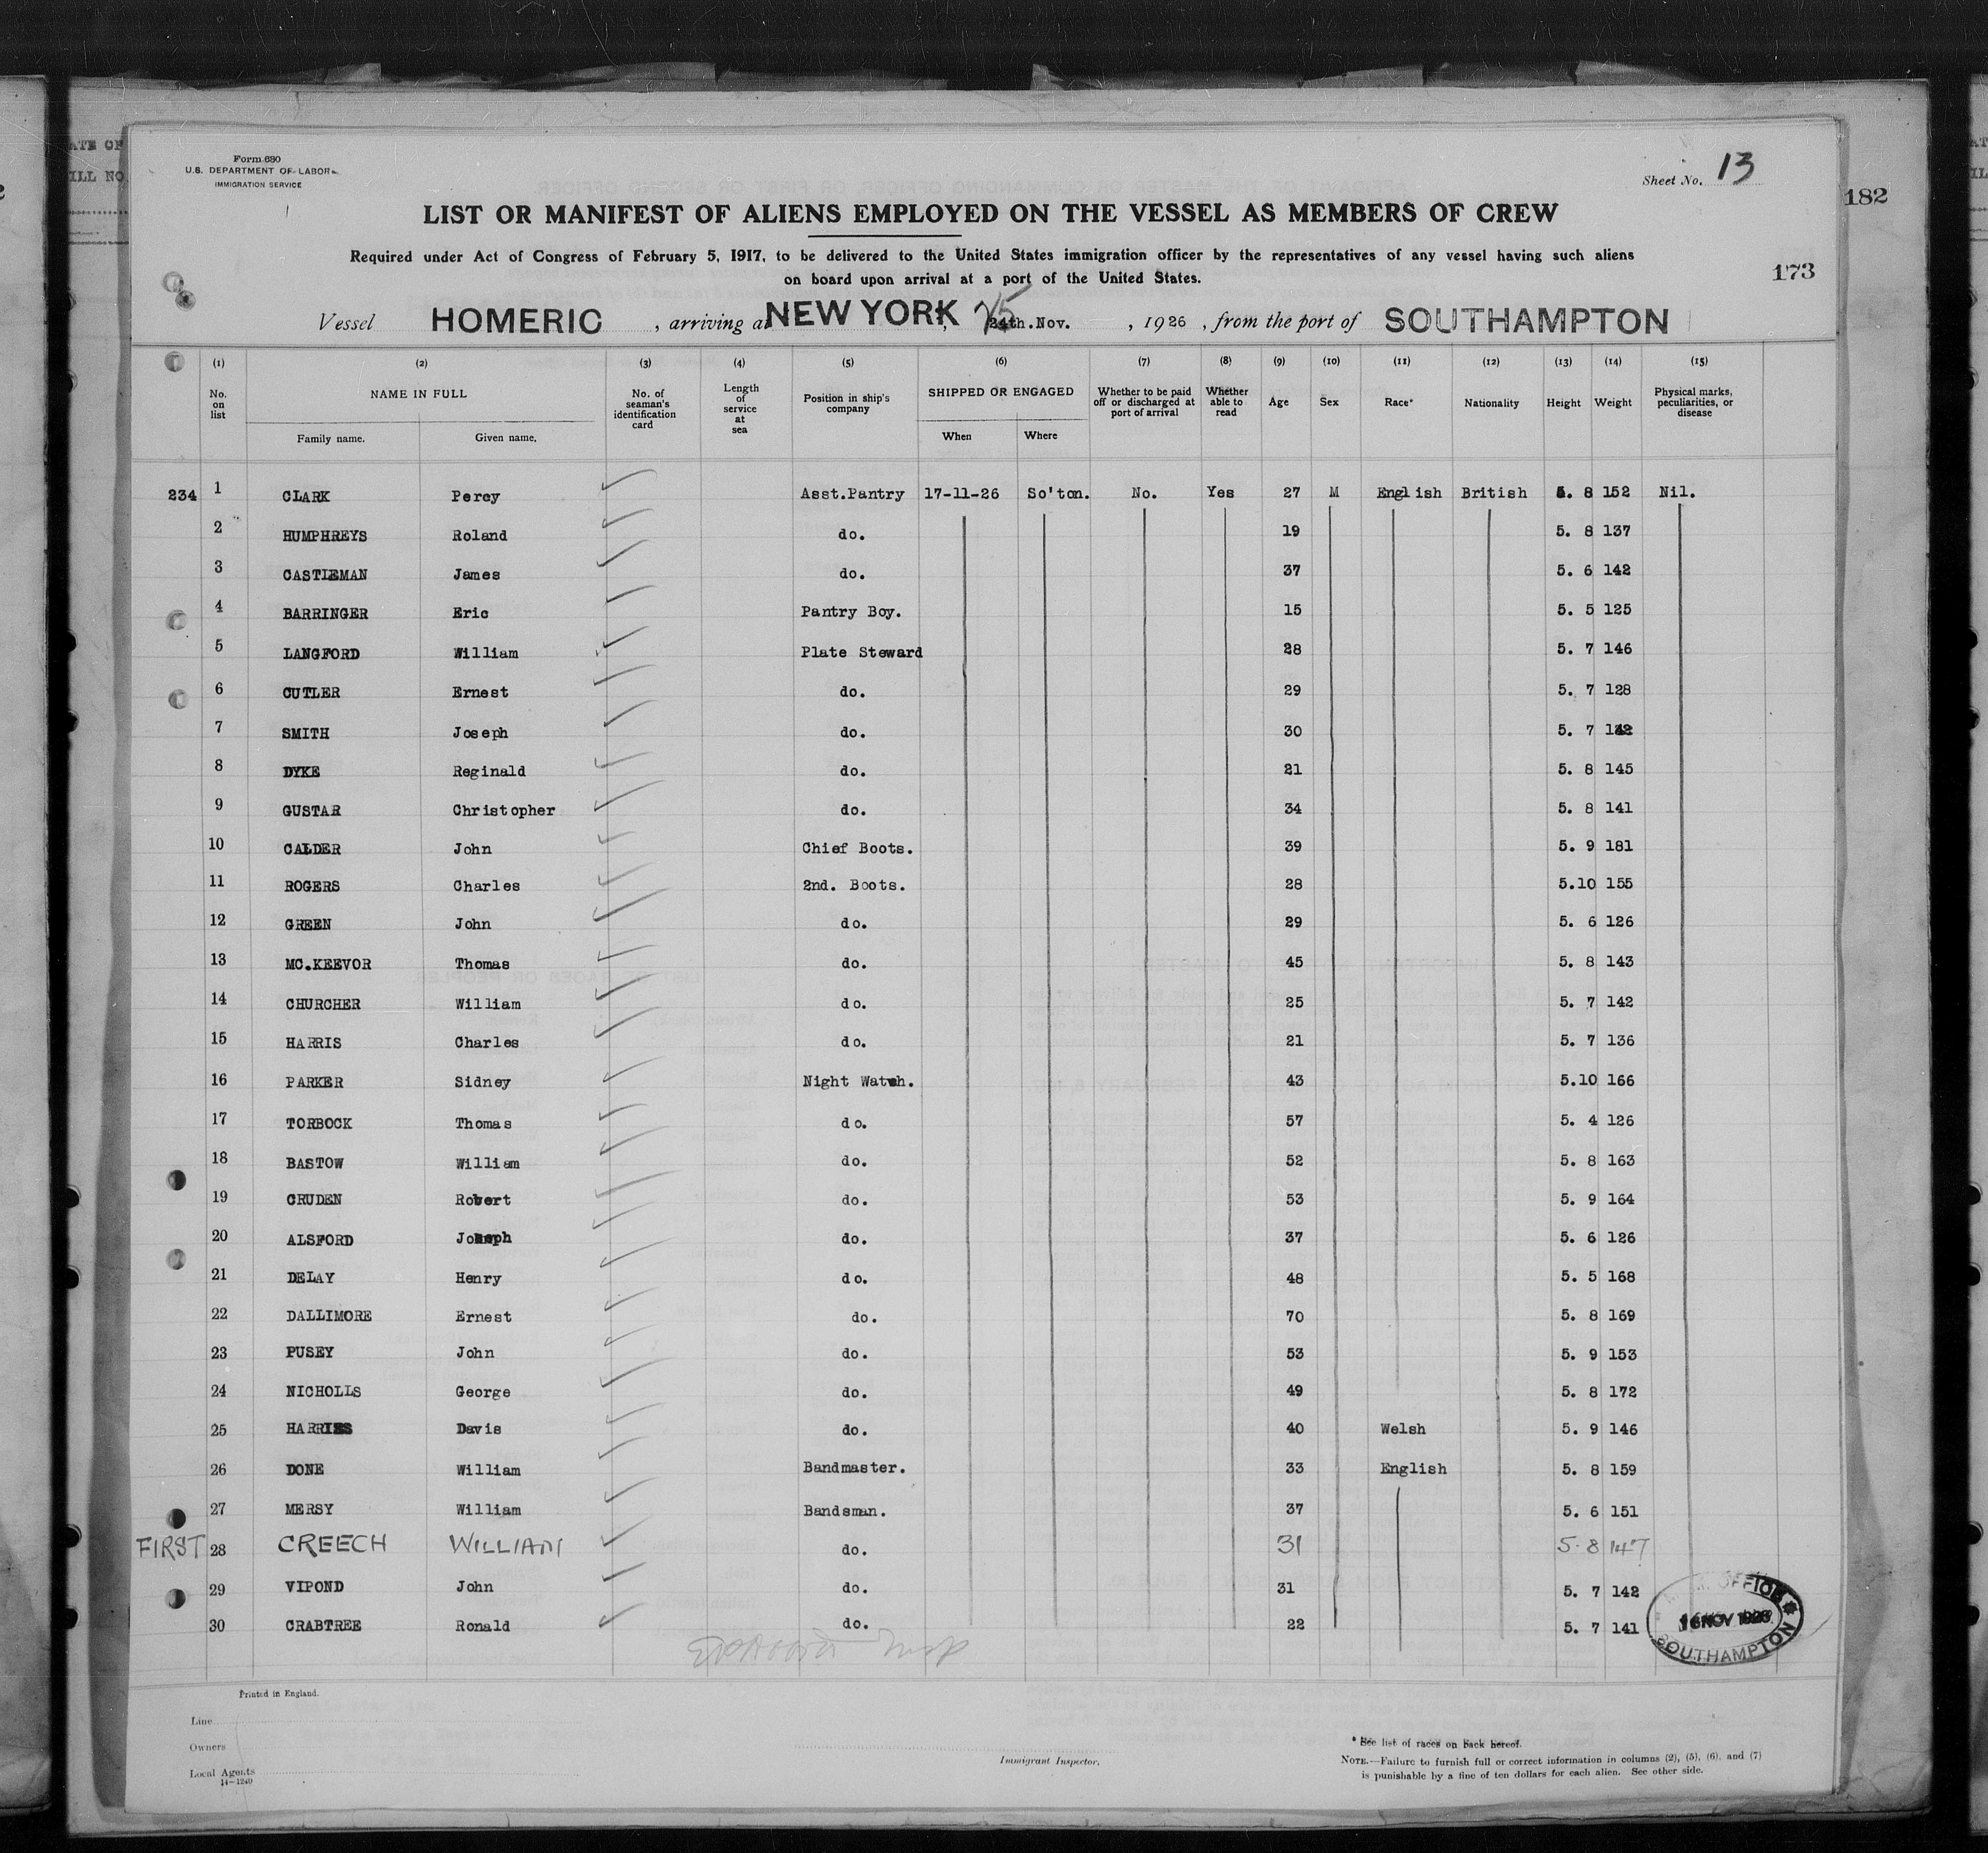 Form 680
U.S. DEPARTMENT OF LABOR
IMMIGRATION SERVICE
Sheet No. 13
182
LIST OR MANIFEST OF ALIENS EMPLOYED ON THE VESSEL AS MEMBERS OF CREW
Required under Act of Congress of February 5, 1917, to be delivered to the United States immigration officer by the representatives of any vessel having such aliens
on board upon arrival at a port of the United States.
173
Vessel HOMERIC , arriving at NEW YORK , 25 24th.Nov. , 1926 , from the port of SOUTHAMPTON
(1) (2) (3) (4) (5) (6) (7) (8) (9) (10) (11) (12) (13) (14) (15)
No. on list NAME IN FULL Family name. Given name. No. of seaman's identification card Length of service at sea Position in ship's company SHIPPED OR ENGAGED When Where Whether to be paid off or discharged at port of arrival Whether able to read Age Sex Race* Nationality Height Weight Physical marks, peculiarities, or disease
234 1 CLARK Percy Asst.Pantry 17-11-26 So'ton. No. Yes 27 M English British 5. 8 152 Nil.
2 HUMPHREYS Roland do. 19 5. 8 137
3 CASTLEMAN James do. 37 5. 6 142
4 BARRINGER Eric Pantry Boy. 15 5. 5 125
5 LANGFORD William Plate Steward 28 5. 7 146
6 CUTLER Ernest do. 29 5. 7 128
7 SMITH Joseph do. 30 5. 7
8 DYKE Reginald do. 21 5. 8 145
9 GUSTAR Christopher do. 34 5. 8 141
10 CALDER John Chief Boots. 39 5. 9 181
11 ROGERS Charles 2nd. Boots. 28 5.10 155
12 GREEN John do. 29 5. 6 126
13 MC.KEEVOR Thomas do. 45 5. 8 143
14 CHURCHER William do. 25 5. 7 142
15 HARRIS Charles do. 21 5. 7 136
16 PARKER Sidney Night Watch. 43 5.10 166
17 TORBOCK Thomas do. 57 5. 4 126
18 BASTOW William do. 52 5. 8 163
19 CRUDEN Robert do. 53 5. 9 164
20 ALSFORD Joseph do. 37 5. 6 126
21 DELAY Henry do. 48 5. 5 168
22 DALLIMORE Ernest do. 70 5. 8 169
23 PUSEY John do. 53 5. 9 153
24 NICHOLLS George do. 49 5. 8 172
25 HARRIES Davis do. 40 Welsh 5. 9 146
26 DONE William Bandmaster. 33 English 5. 8 159
27 MERSY William Bandsman. 37 5. 6 151
FIRST 28 CREECH WILLIAM do. 31 5-8 147
29 VIPOND John do. 31 5. 7 142
30 CRABTREE Ronald do. 22 5. 7 141
OFFICE
NOV
SOUTHAMPTON
Printed in England.
Line
Owners
Local Agents
14-1240
Immigrant Inspector.
* See list of races on back hereof.
NOTE.—Failure to furnish full or correct information in columns (2), (5), (6), and (7)
is punishable by a fine of ten dollars for each alien. See other side.